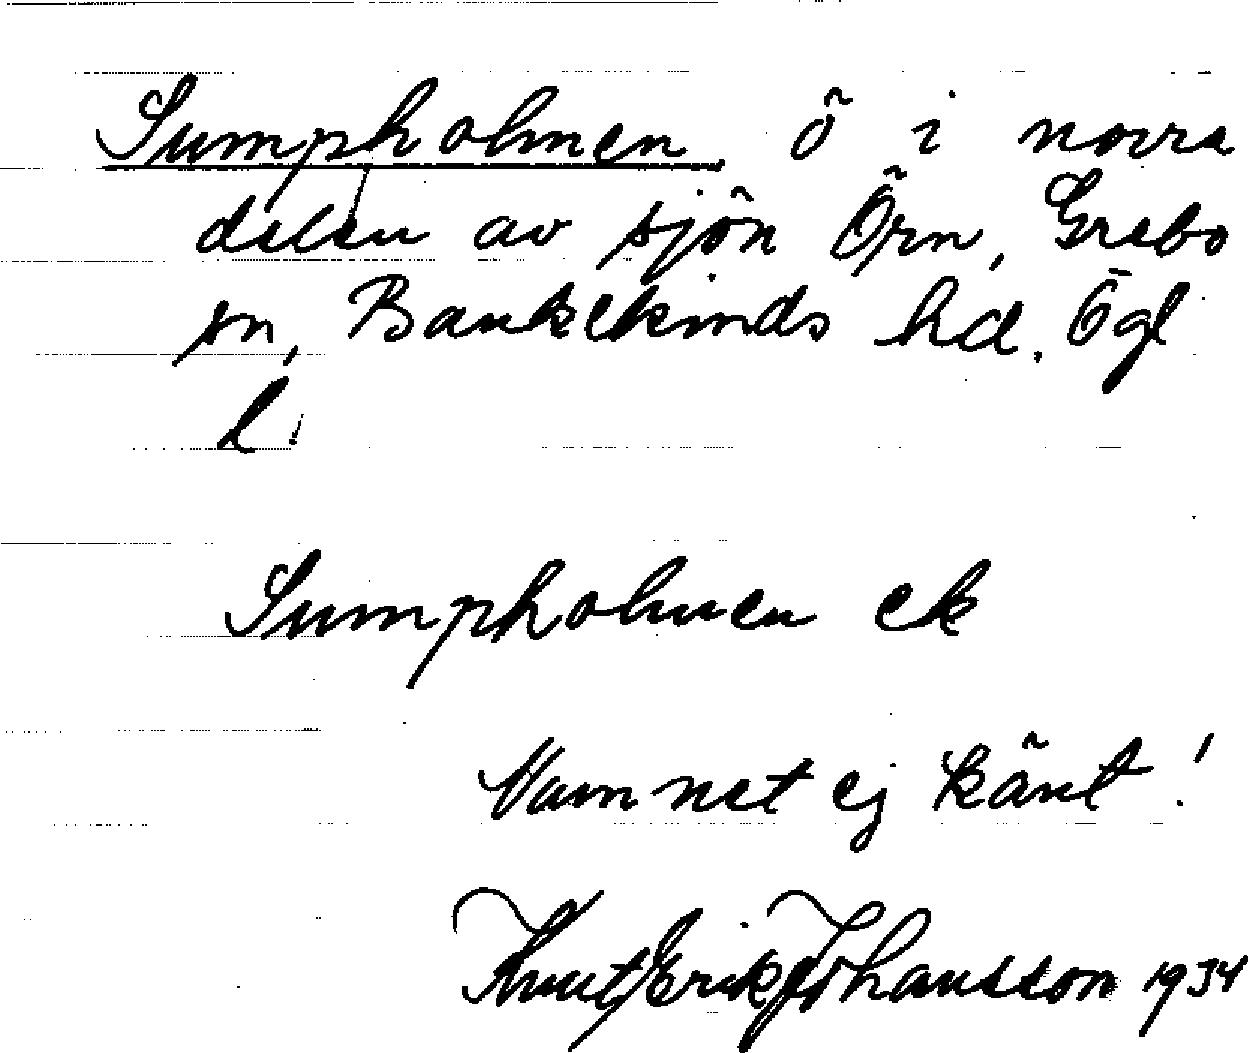 Sumpholmen, ö i norra
delen av sjön Örn, Grebo
sn, Bankekinds hd. Ögl
l.
Sumpholmen ek
Namnet ej känt!
Knut Erik Johansson 1934